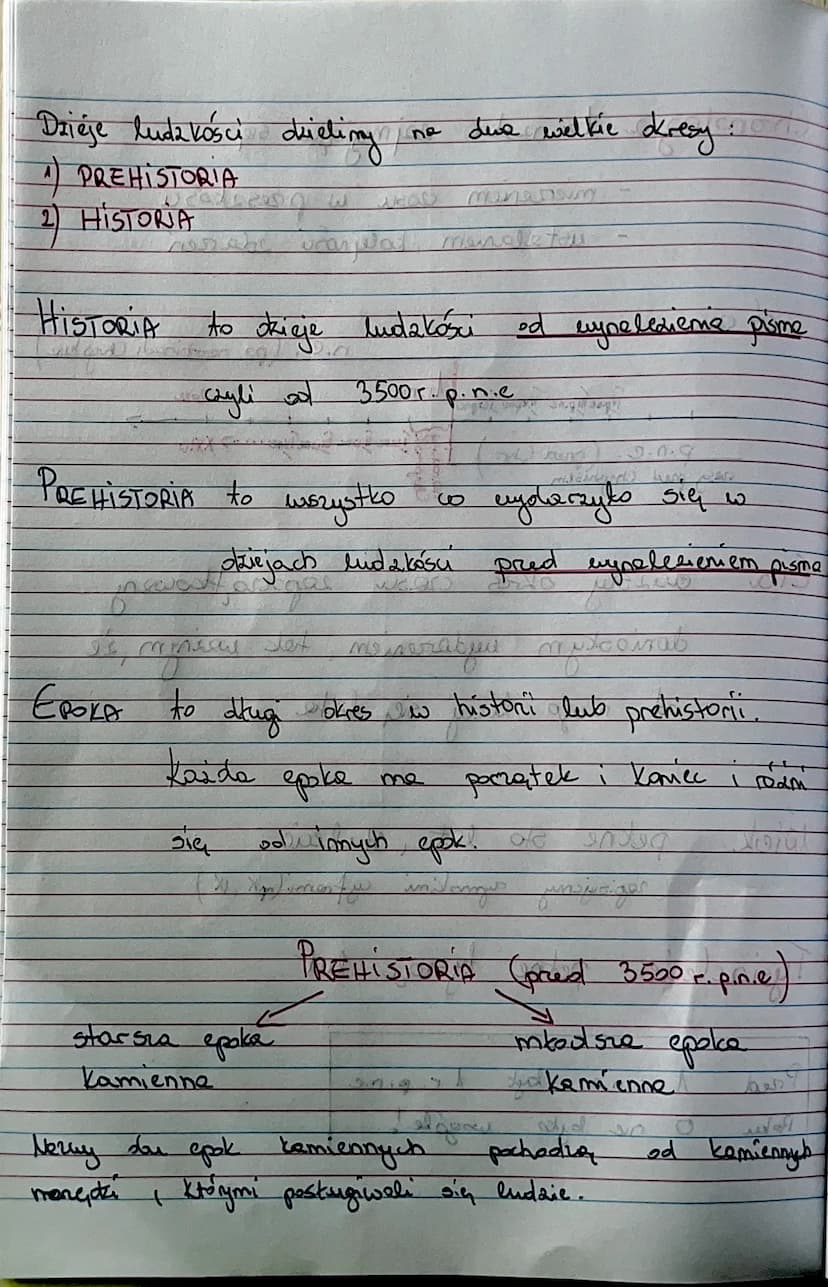 Dzieje ludzkości dzielimy na dwa wielkie okresy:
1) PREHISTORIA
2) HISTORIA
HISTORIA to dzieje ludzkości od wynalezienia pisma
czyli od 3500 r. p.n.e
PREHISTORIA to wszystko co wydarzyło się w
dziejach ludzkości przed wynalezieniem pisma
EPOKA to długi okres w historii lub prehistorii.
Każda epoka ma początek i koniec i różni
się od innych epok.
PREHISTORIA (przed 3500 r. p.n.e)
starsza epoka młodsza epoka
kamienna kamienna
Nazwy dwu epok kamiennych pochodzą od kamiennych
narzędzi, którymi posługiwali się ludzie.